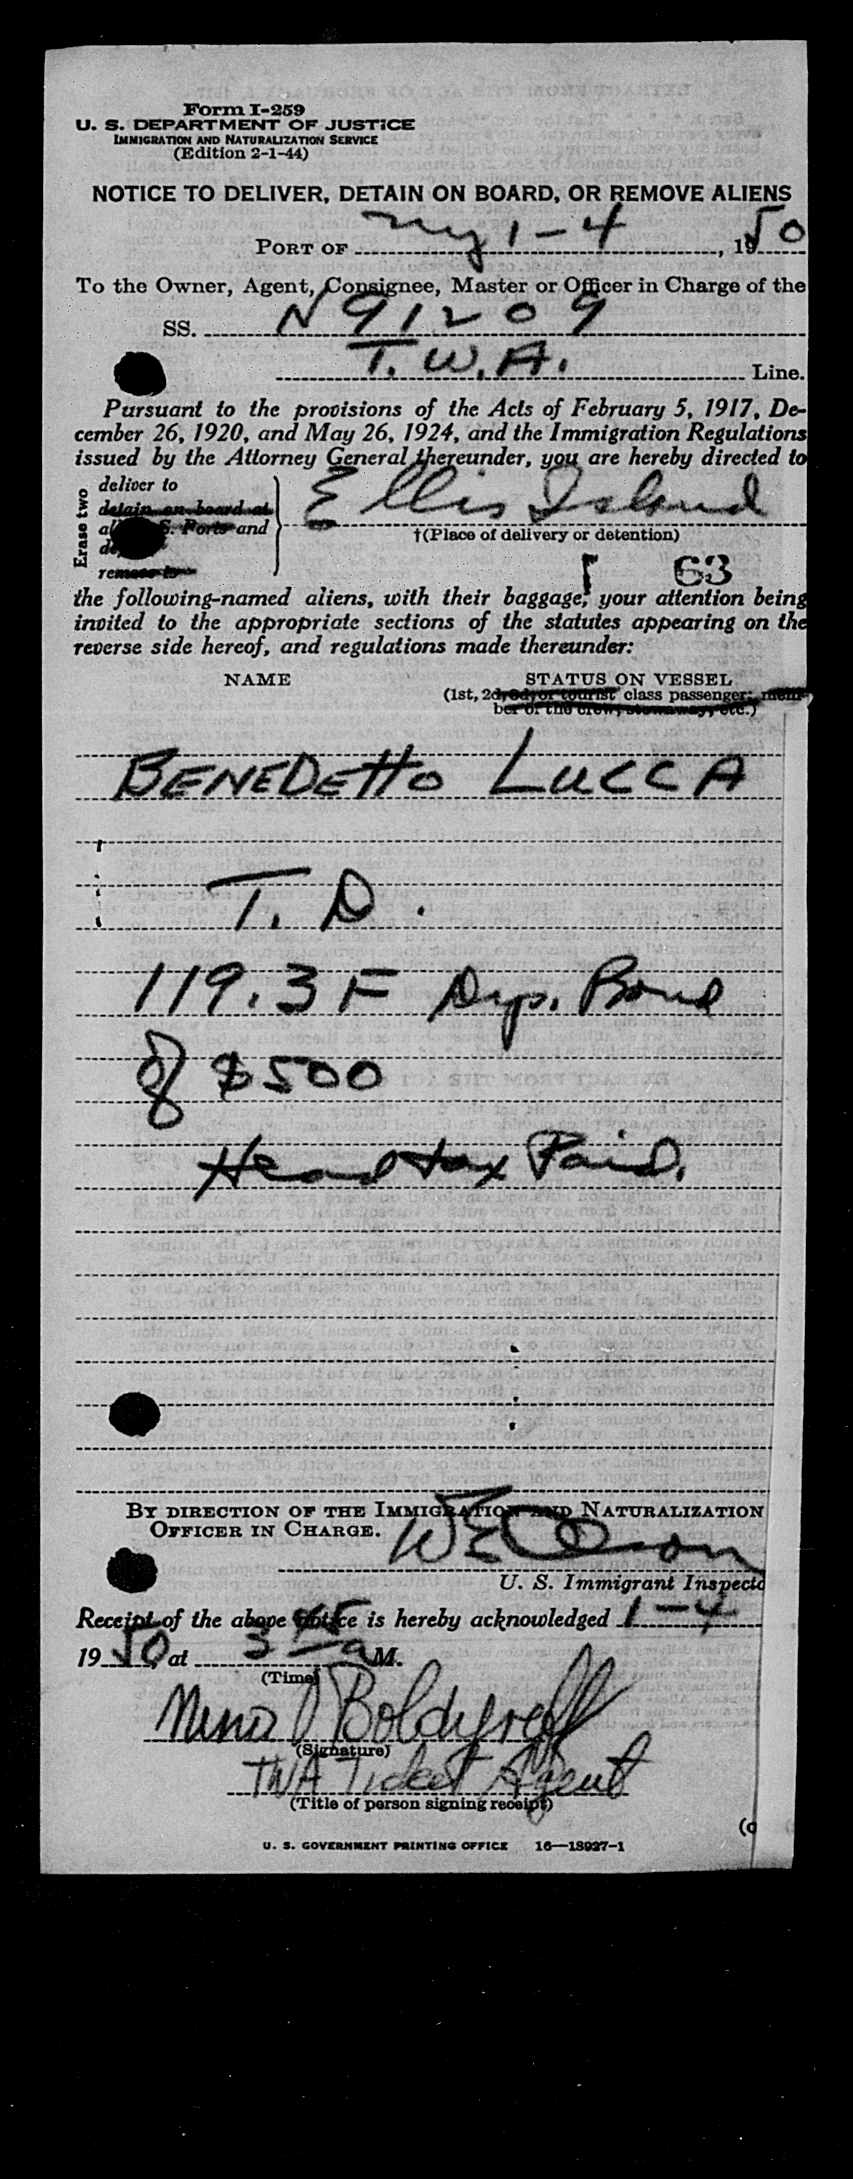 Form I-259
U. S. DEPARTMENT OF JUSTICE
IMMIGRATION AND NATURALIZATION SERVICE
(Edition 2-1-44)
NOTICE TO DELIVER, DETAIN ON BOARD, OR REMOVE ALIENS
PORT OF ny 1-4, 1950
To the Owner, Agent, Consignee, Master or Officer in Charge of the
SS. N 91209
T.W.A. Line.
Pursuant to the provisions of the Acts of February 5, 1917, De-
cember 26, 1920, and May 26, 1924, and the Immigration Regulations
issued by the Attorney General thereunder, you are hereby directed to
Erase two
deliver to
detain on board at
al S. Ports and
de
remove to
Ellis Island
†(Place of delivery or detention)
63
the following-named aliens, with their baggage, your attention being
invited to the appropriate sections of the statutes appearing on the
reverse side hereof, and regulations made thereunder:
NAME STATUS ON VESSEL
(1st, 2d, 3d, or tourist class passenger; mem-
ber of the crew, stowaway, etc.)
BENEDETTO LUCCA
T. D.
119.3 F Dep. Bond
of $500
Head tax Paid.
BY DIRECTION OF THE IMMIGRATION AND NATURALIZATION
OFFICER IN CHARGE.
U. S. Immigrant Inspecto
Receipt of the above notice is hereby acknowledged 1-4
1950, at 3 45 a M.
(Time)
Nina Boldyreff
(Signature)
TWA Ticket Agent
(Title of person signing receipt)
(o
U. S. GOVERNMENT PRINTING OFFICE 16—18927-1